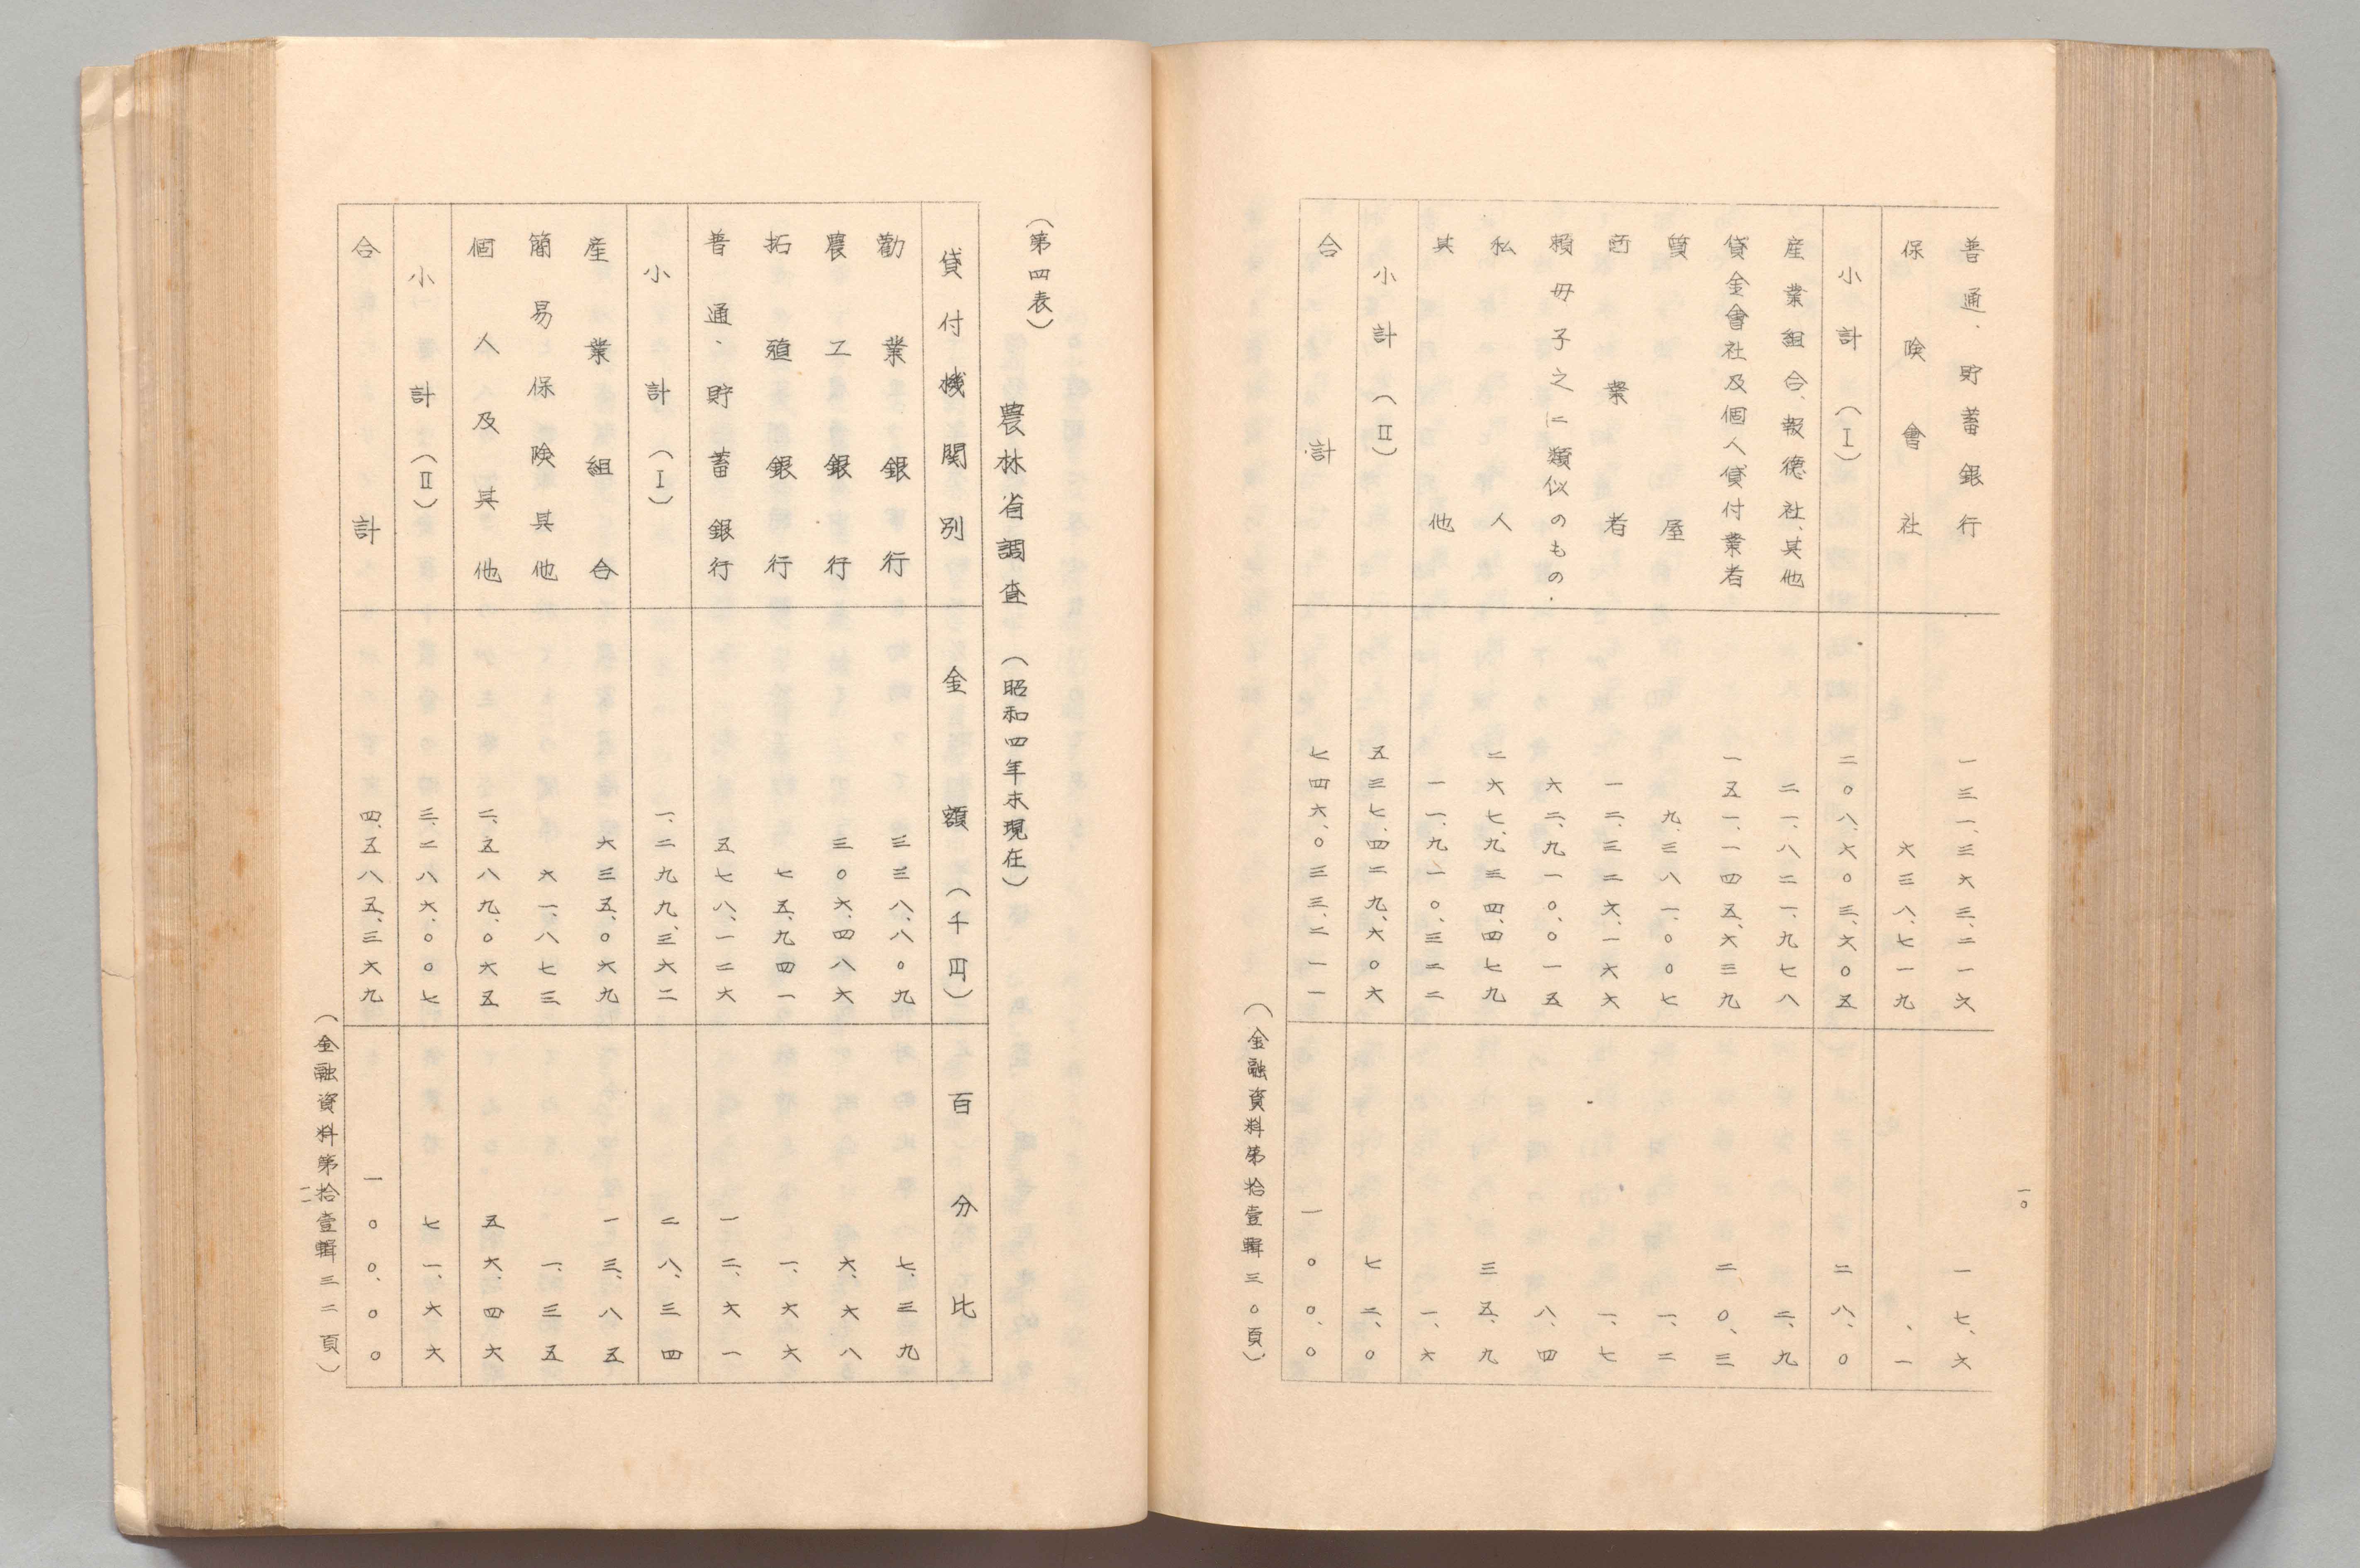 一〇
普通、貯蓄銀行 一三一、三六三、二一六 一七、六
保険會社 六三八、七一九 、一
小計（Ⅰ） 二〇八、六〇三、六〇五 二八、〇
産業組合、報徳社、其他 二一、八二一、九七八 二、九
貸金會社及個人貸付業者 一五一、一四五、六三九 二〇、三
質屋 九、三八一、〇〇七 一、二
商業者 一二、三二六、一六六 一、七
頼母子之に類似のもの 六二、九一〇、〇一五 八、四
私人 二六七、九三四、四七九 三五、九
其他 一一、九一〇、三二二 一、六
小計（Ⅱ） 五三七、四二九、六〇六 七二、〇
合計 七四六、〇三三、二一一 一〇〇、〇
（金融資料第拾壹輯三〇頁）
（第四表）
農林省調査（昭和四年末現在）
貸付機関別 金額（千円） 百分比
勸業銀行 三三八、八〇九 七、三九
農工銀行 三〇六、四八六 六、六八
拓殖銀行 七五、九四一 一、六六
普通、貯蓄銀行 五七八、一二六 一二、六一
小計（Ⅰ） 一、二九九、三六二 二八、三四
産業組合 六三五、〇六九 一三、八五
簡易保険其他 六一、八七三 一、三五
個人及其他 二、五八九、〇六五 五六、四六
小計（Ⅱ） 三、二八六、〇〇七 七一、六六
合計 四、五八五、三六九 一〇〇、〇〇
（金融資料第拾壹輯三二頁）
一一